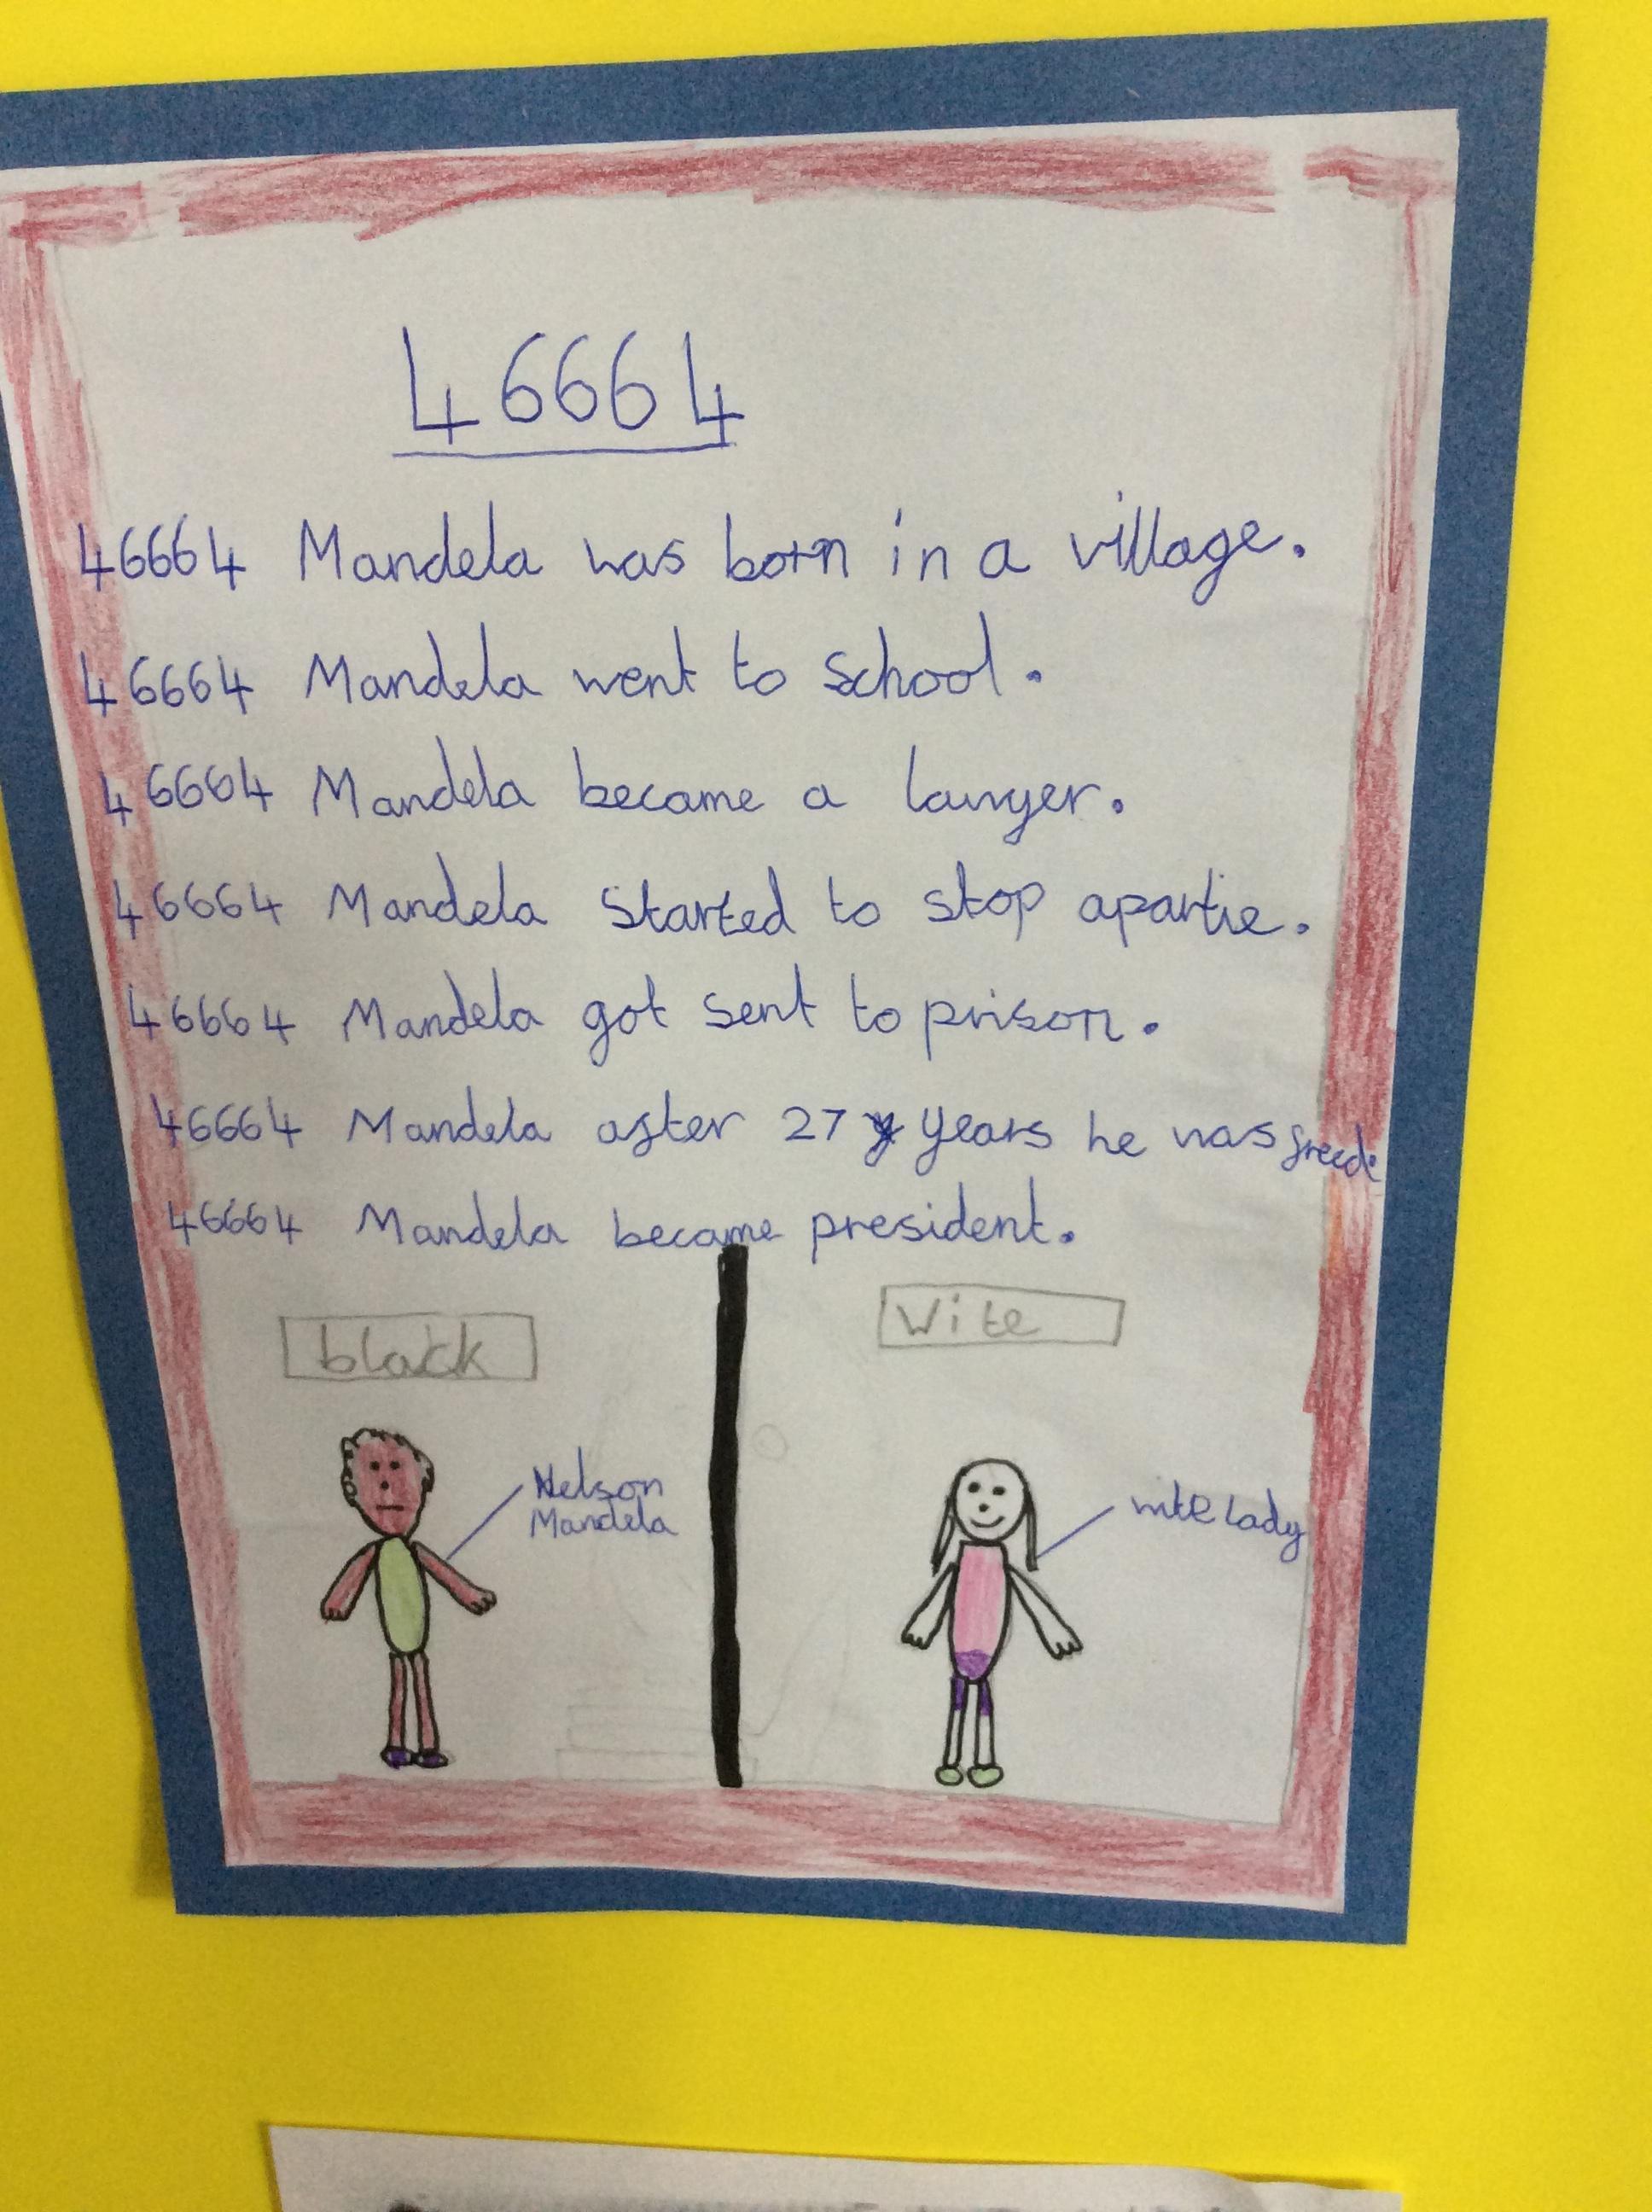 46664
46664 Mandela was born in a village.
46664 Mandela went to School.
46664 Mandela became a lawyer.
46664 Mandela Started to stop apartie.
46664 Mandela got sent to prison.
46664 Mandela after 27 years he was freed.
46664 Mandela became president.
black
Wite
Nelson
Mandela
wite lady